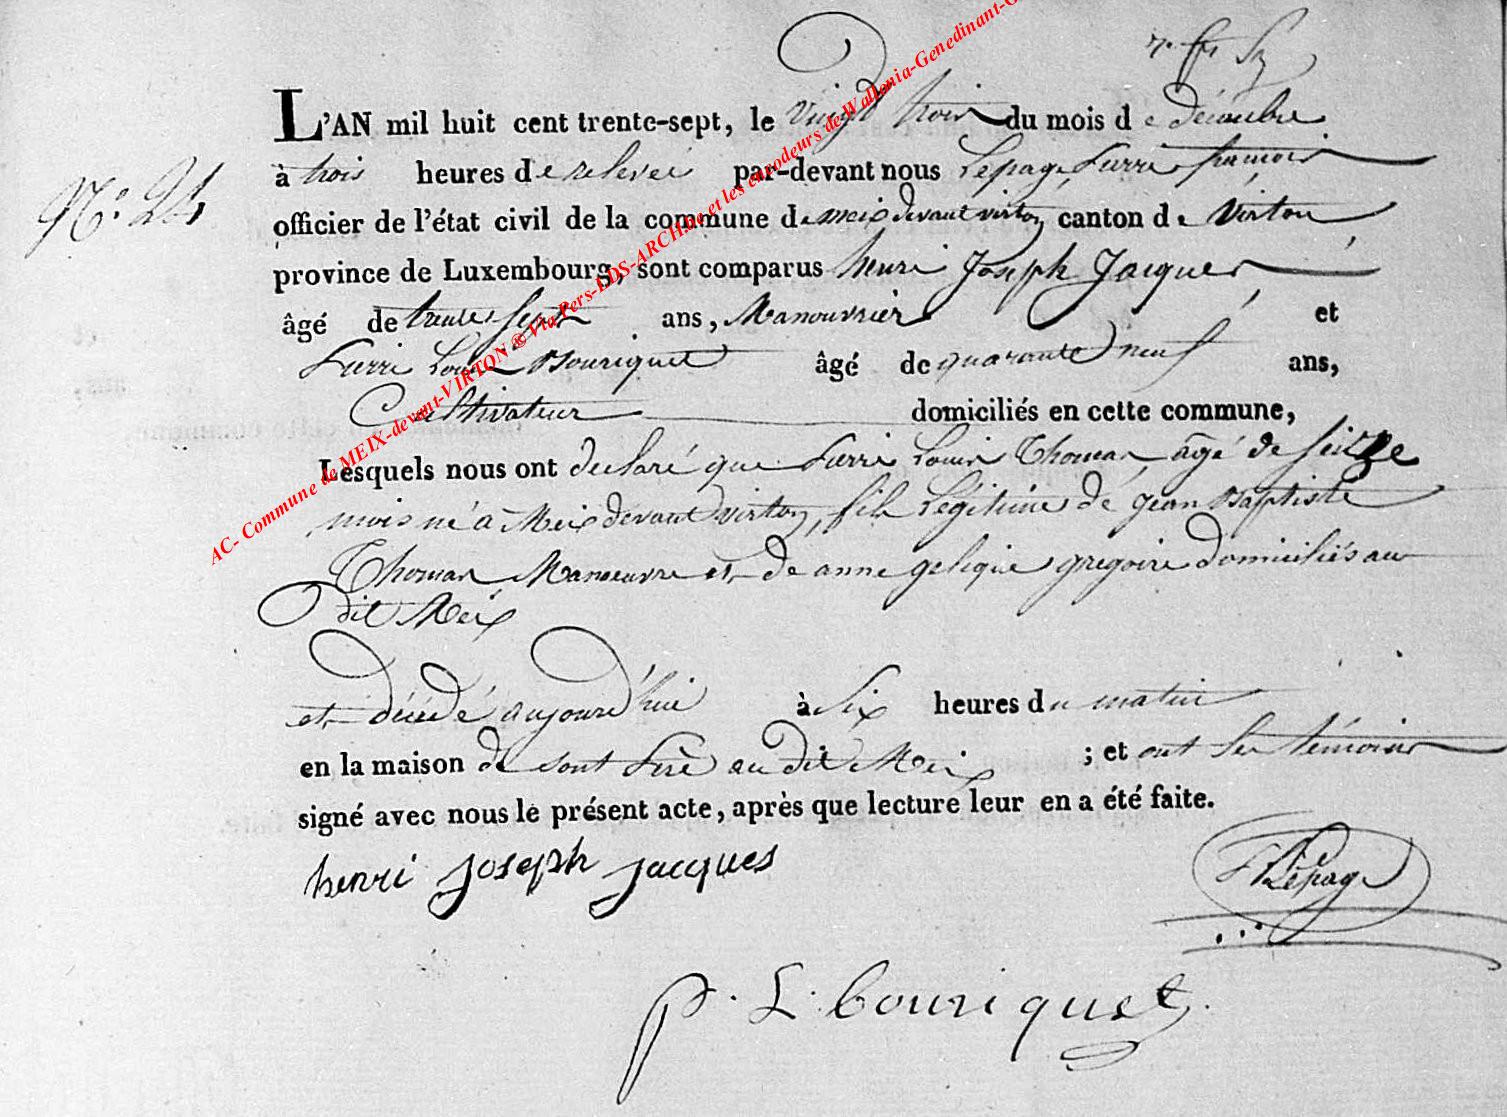 L'AN mil huit cent trente-sept, le Vingt trois du mois de décembre
N.° 24
à trois heures de relevée par-devant nous Lepage, Pierre françois
officier de l'état civil de la commune de meix devant virton canton de Virton
province de Luxembourg, sont comparus henri Joseph Jacques
âgé de trente sept ans, Manouvrier et
Pierre Louis Bouriquet âgé de quarante neuf ans,
Cultivateur domiciliés en cette commune,
Lesquels nous ont declaré que Pierre Louis Thomas, âgé de seize
mois né à Meix devant virton, fils Legitime de jean Baptiste
Thomas Manoeuvre et de anne gelique gregoire domiciliés au
dit Meix
et décédé aujourd'hui à six heures du matin
en la maison de sont Pere au dit Meix ; et ont les témoins
signé avec nous le présent acte, après que lecture leur en a été faite.
henri joseph jacques
Lepage
p. L. bouriquet
AC- Commune de MEIX-devant-VIRTON ® Via Pers-LDS-ARCH.be et les encodeurs de Wallonia-Genedinant-G